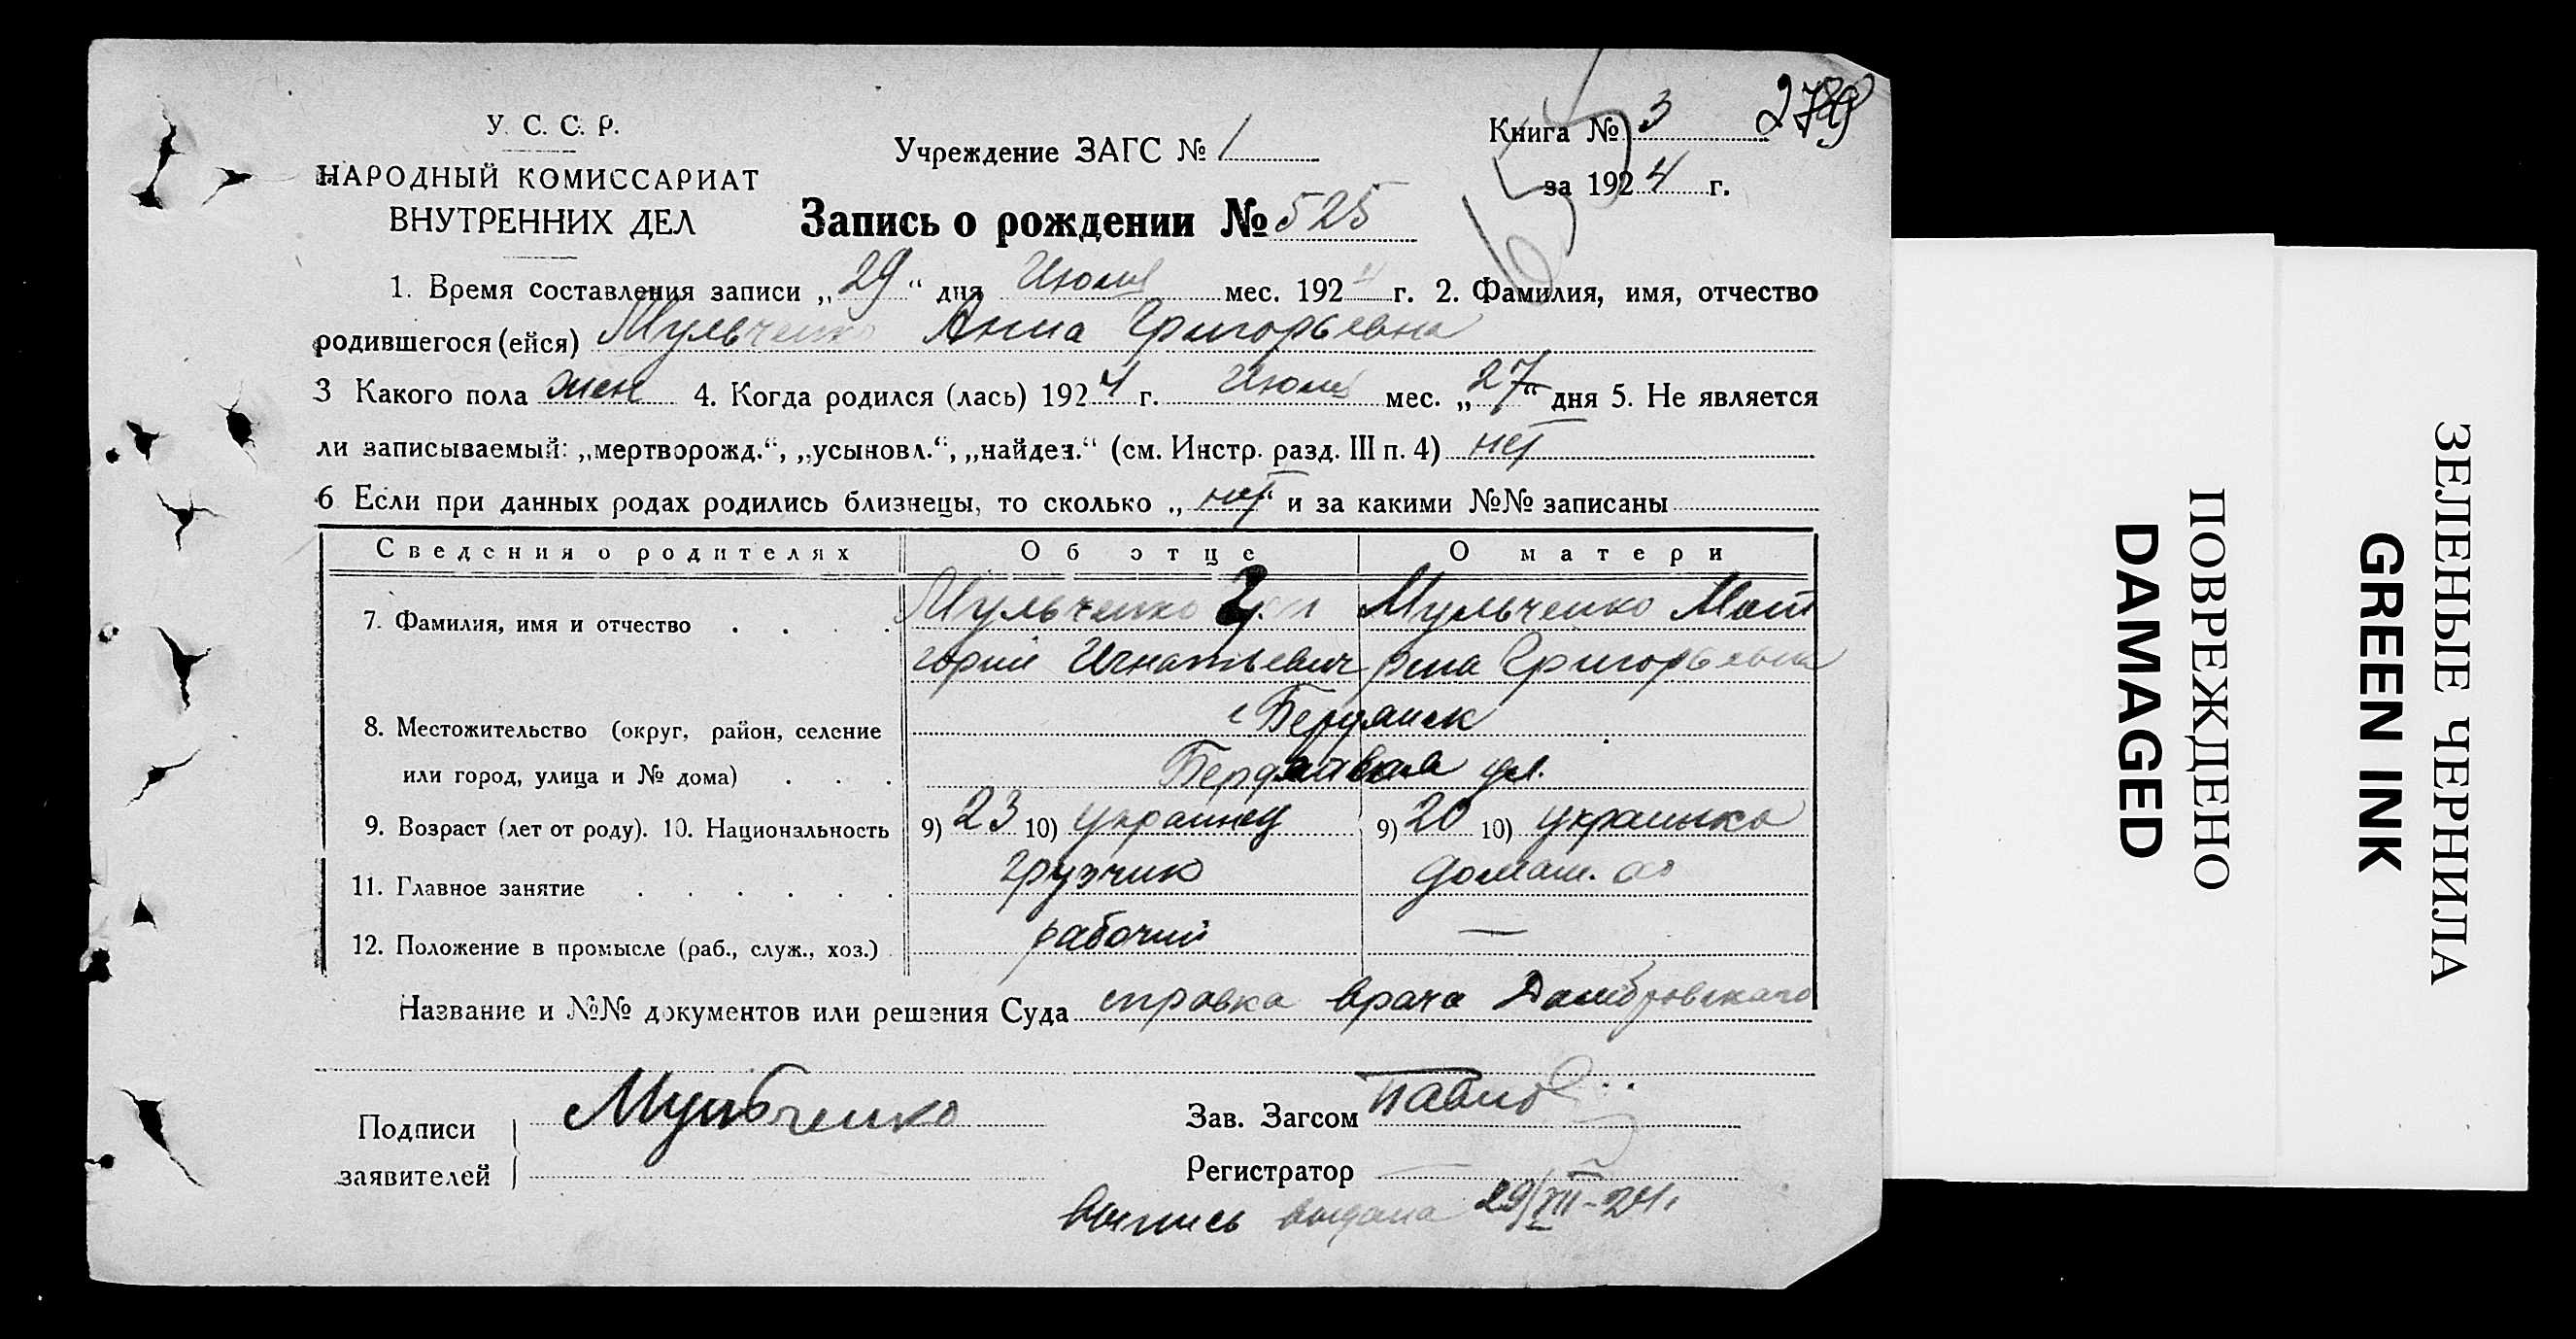 У. С. С. Р.
НАРОДНЫЙ КОМИССАРИАТ
ВНУТРЕННИХ ДЕЛ
Учреждение ЗАГС № 1
Книга № 3
за 1924 г.
Запись о рождении № 525
1. Время составления записи „29“ дня Июля мес. 1924 г. 2. Фамилия, имя, отчество
родившегося (ейся) Мульченко Анна Григорьевна
3 Какого пола жен 4. Когда родился (лась) 1924 г. Июля мес. „27“ дня 5. Не является
ли записываемый: „мертворожд.“, „усыновл.“, „найден.“ (см. Инстр. разд. III п. 4) нет
6 Если при данных родах родились близнецы, то сколько „нет“ и за какими №№ записаны
Сведения о родителях Об отце О матери
7. Фамилия, имя и отчество . . . . Мульченко Гри Мульченко Мат
горий Игнатьевич рена Григорьевна
8. Местожительство (округ, район, селение г Бердянск
или город, улица и № дома) . . . ул.
9. Возраст (лет от роду). 10. Национальность 9) 23 10) украинец 9) 20 10) украинка
11. Главное занятие . . . . . . грузчик домаш. хоз
12. Положение в промысле (раб., служ., хоз.) рабочий —
Название и №№ документов или решения Суда справка врача Домбровского
Подписи
заявителей
Мульченко
Зав. Загсом
Регистратор
выпись выдана 29/VII-24 г.
ПОВРЕЖДЕНО
DAMAGED
ЗЕЛЕНЫЕ ЧЕРНИЛА
GREEN INK